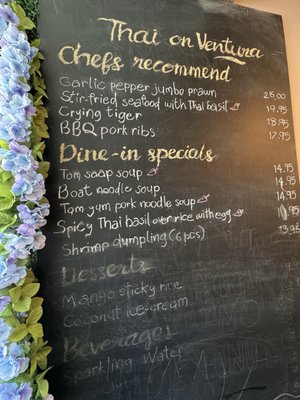 Thai on Ventura
Chefs recommend
Garlic pepper jumbo prawn 28.00
Stir-fried seafood with Thai basil 19.95
Crying tiger 18.95
BBQ pork ribs 17.95
Dine-in specials
Tom saap soup 14.95
Boat noodle soup 14.95
Tom yum pork noodle soup 14.95
Spicy Thai basil over rice with egg
Shrimp dumpling (6 pcs) 13.95
Desserts
Mango sticky rice
Coconut ice-cream
Beverages
Sparkling Water